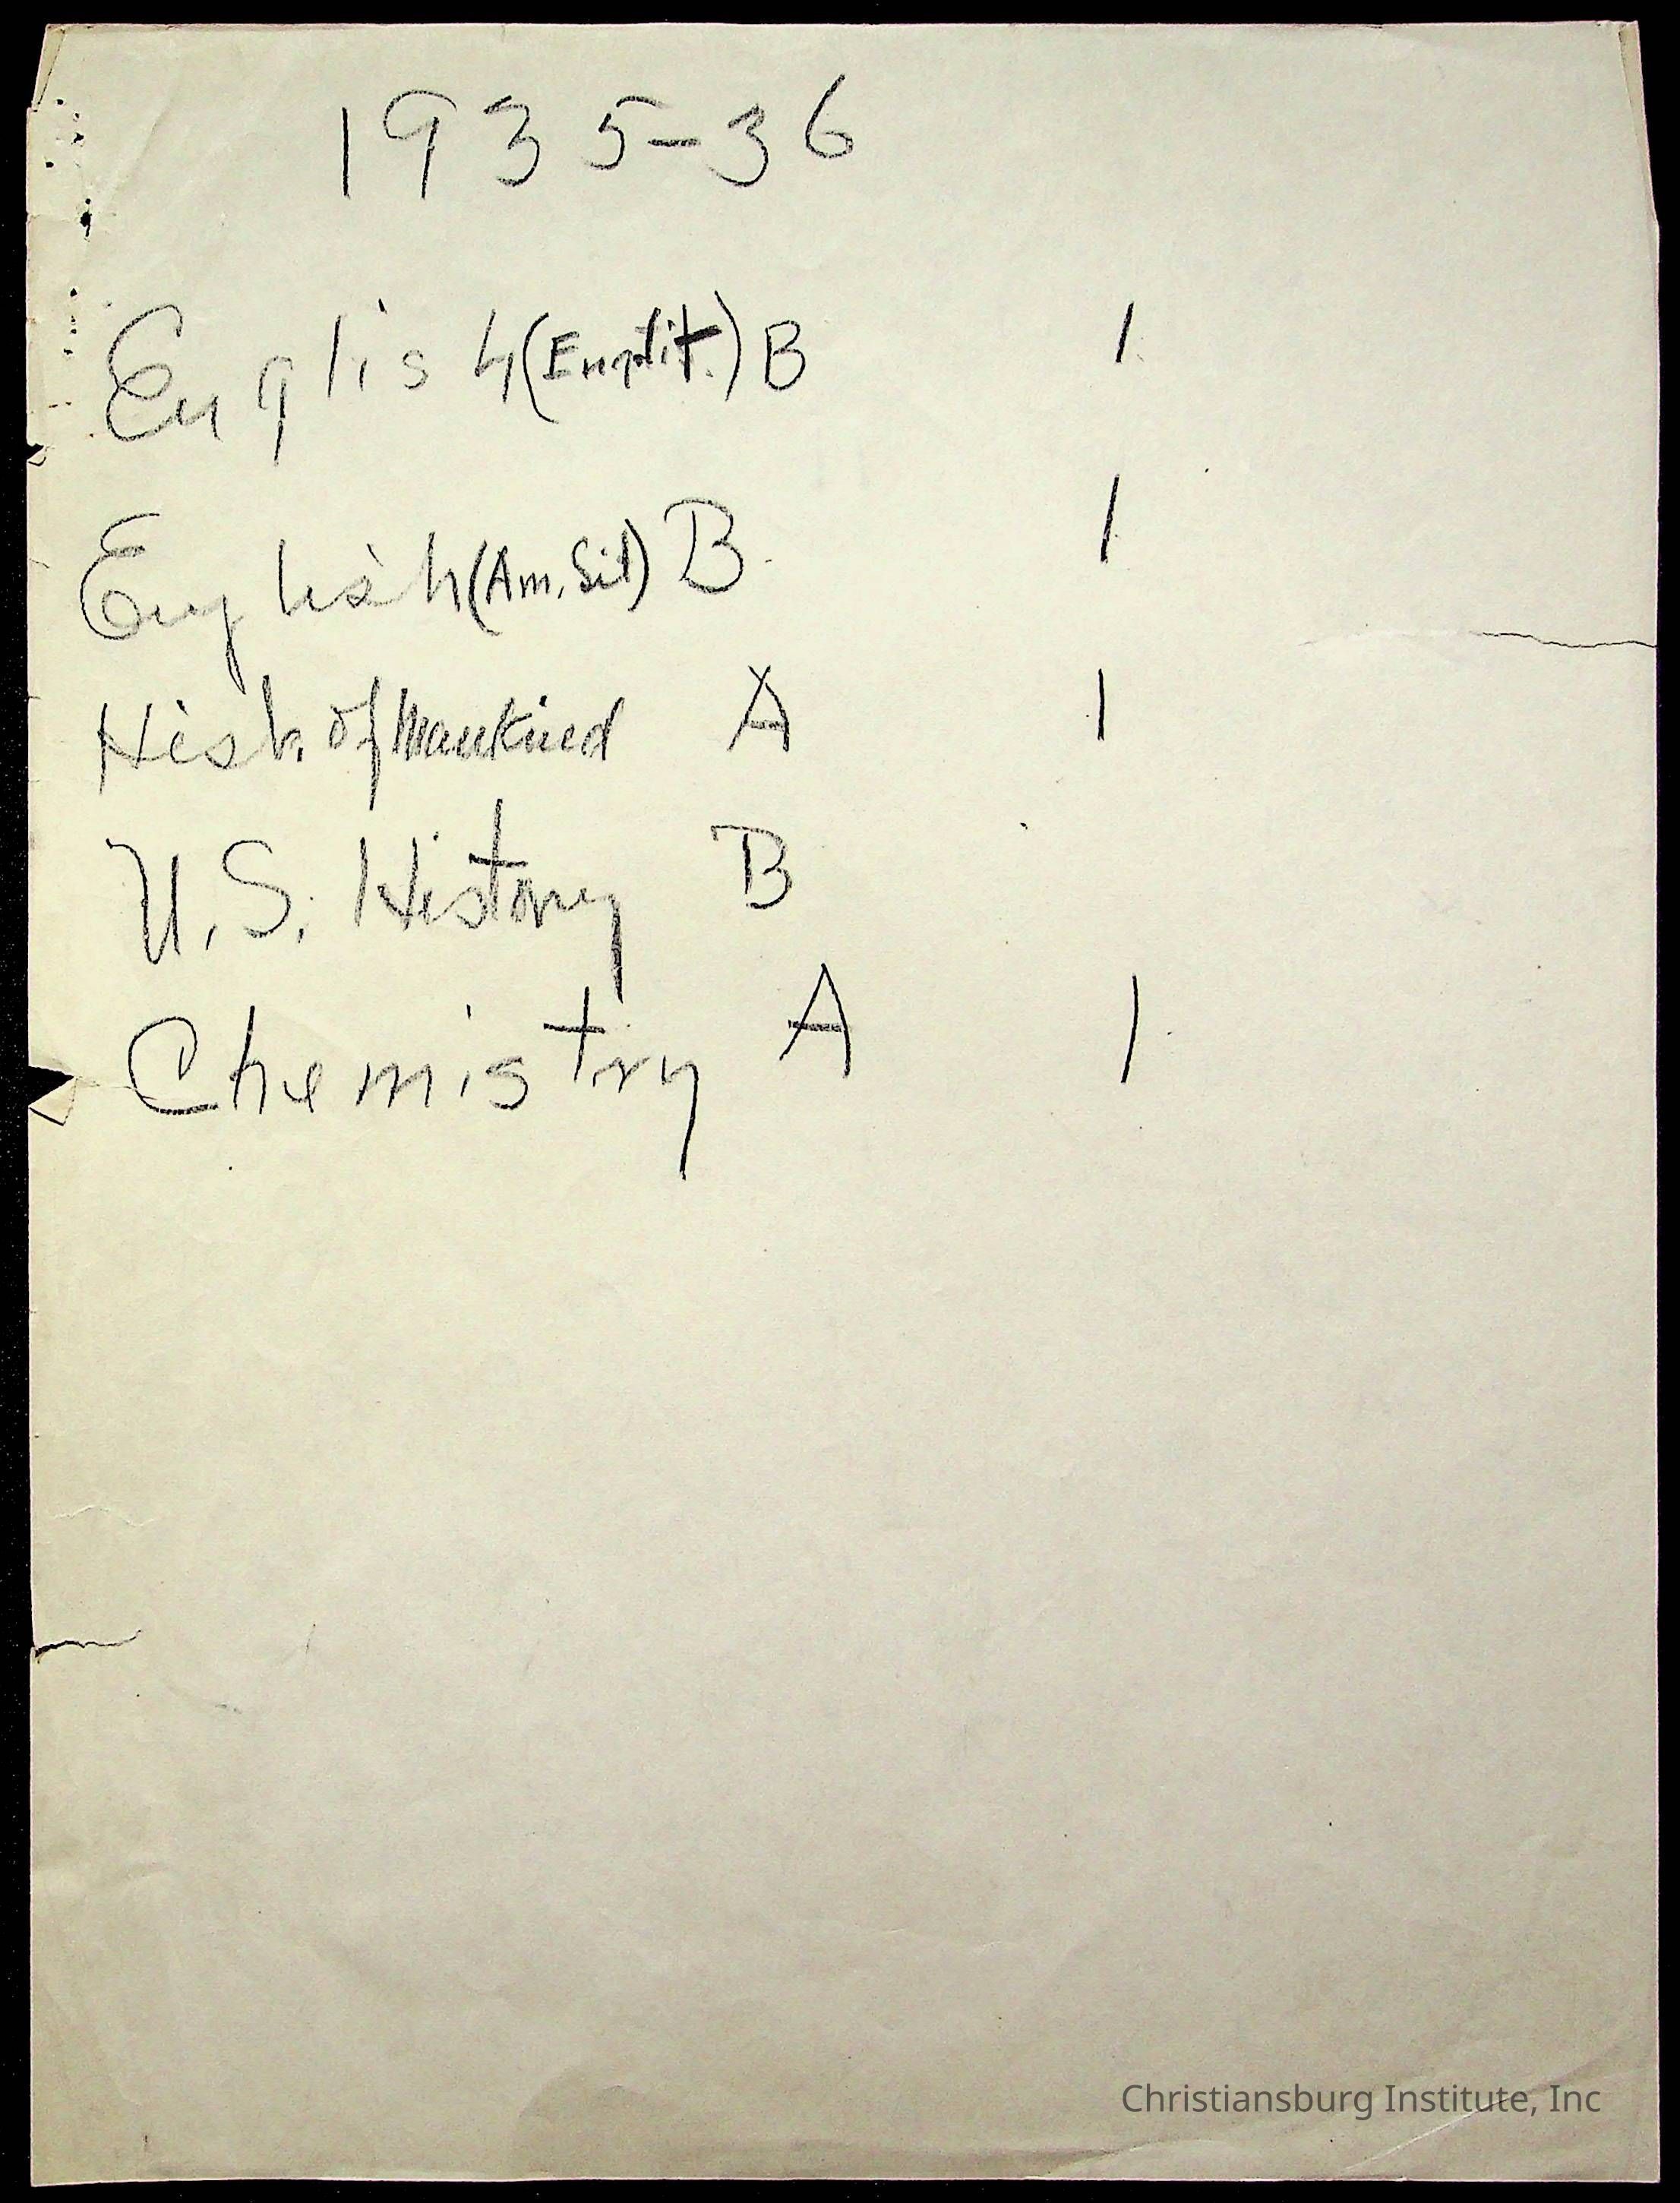 1935-36
English (Eng. Lit.) B 1
English (Am. Lit) B 1
Hist. of Mankind A 1
U.S. History B
Chemistry A 1
Christiansburg Institute, Inc